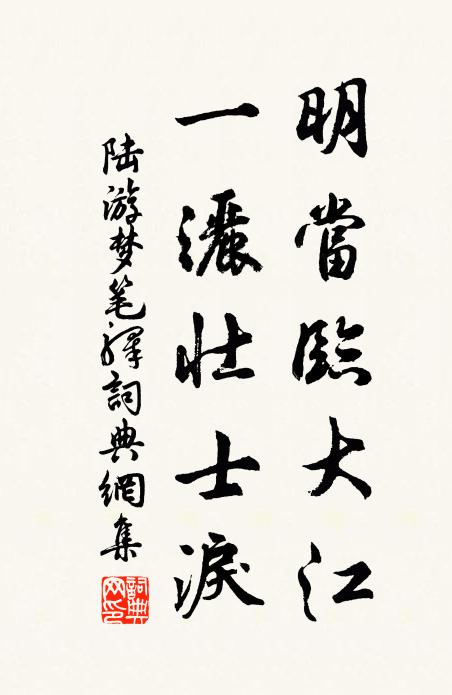 明當臨大江
一灑壯士淚
陸游梦笔禪詞典網集
詞典網印